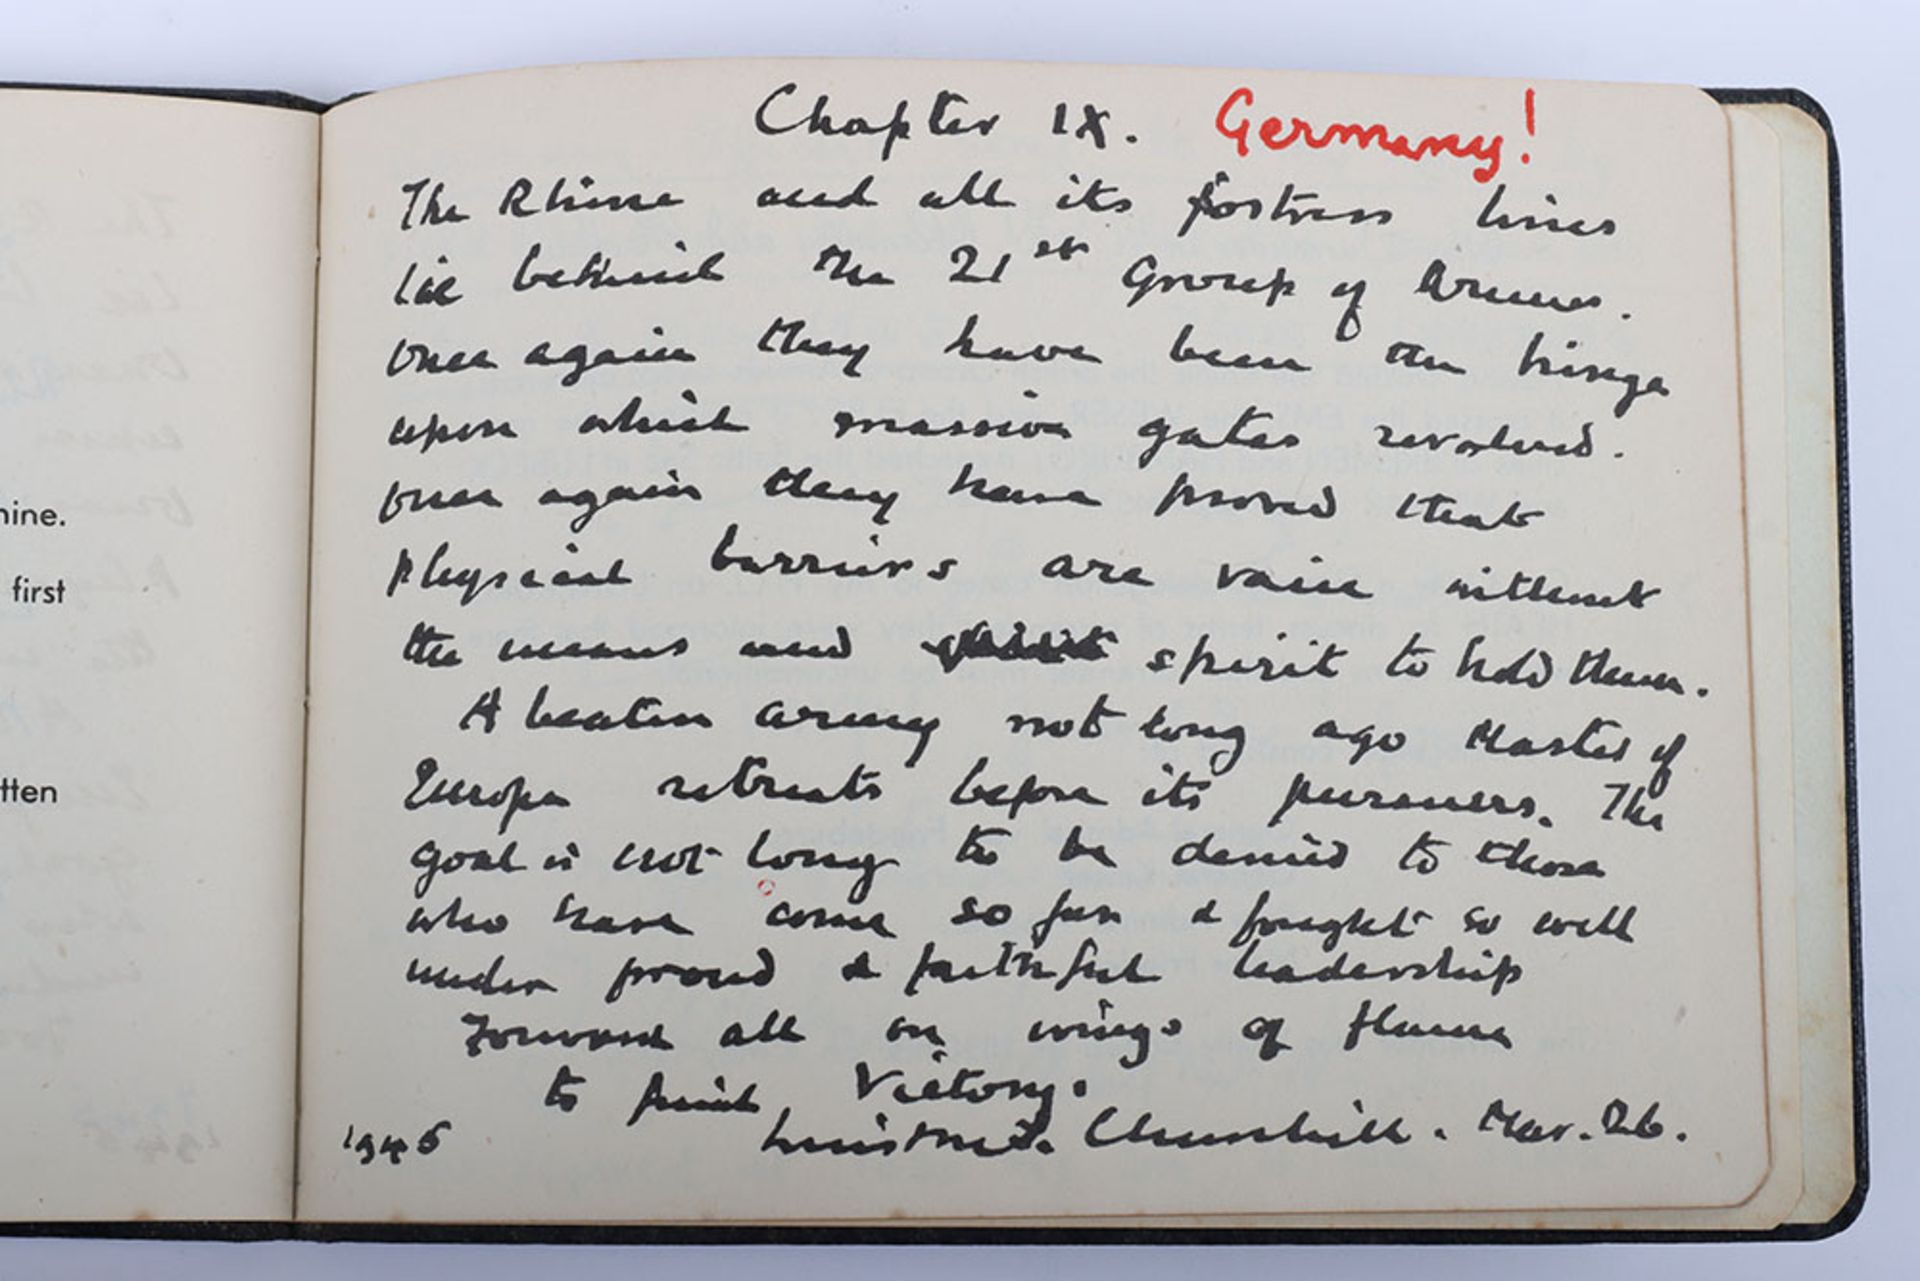 hine.
first
tten
Chapter IX. Germany!
The Rhine and all its fortress lines
lie behind the 21st Group of Armies.
Once again they have been the hinge
upon which massive gates revolved.
Once again they have proved that
physical barriers are vain without
the means and spirit to hold them.
A beaten army not long ago Master of
Europe retreats before its pursuers. The
goal is not long to be denied to those
who have come so far & fought so well
under proud & faithful leadership
Forward all on wings of flame
to final Victory.
1945 Winston S. Churchill. Mar. 26.